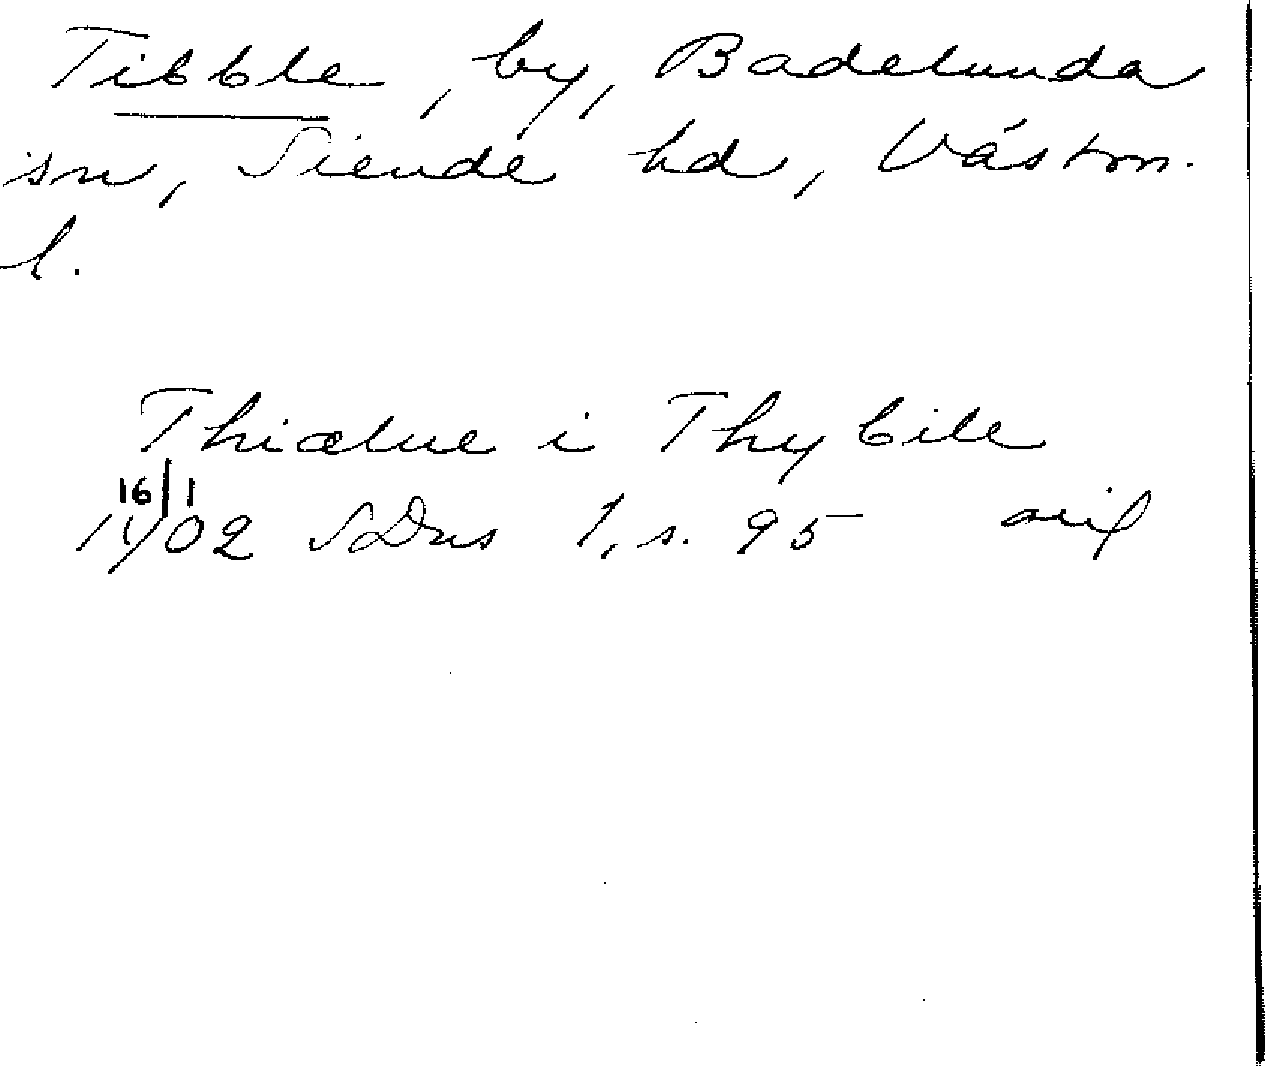 Tibble, by, Badelunda
sn, Siende hd, Västm.
l.
Thiælue i Thybile
16/1
1402 SDns 1, s. 95 orig